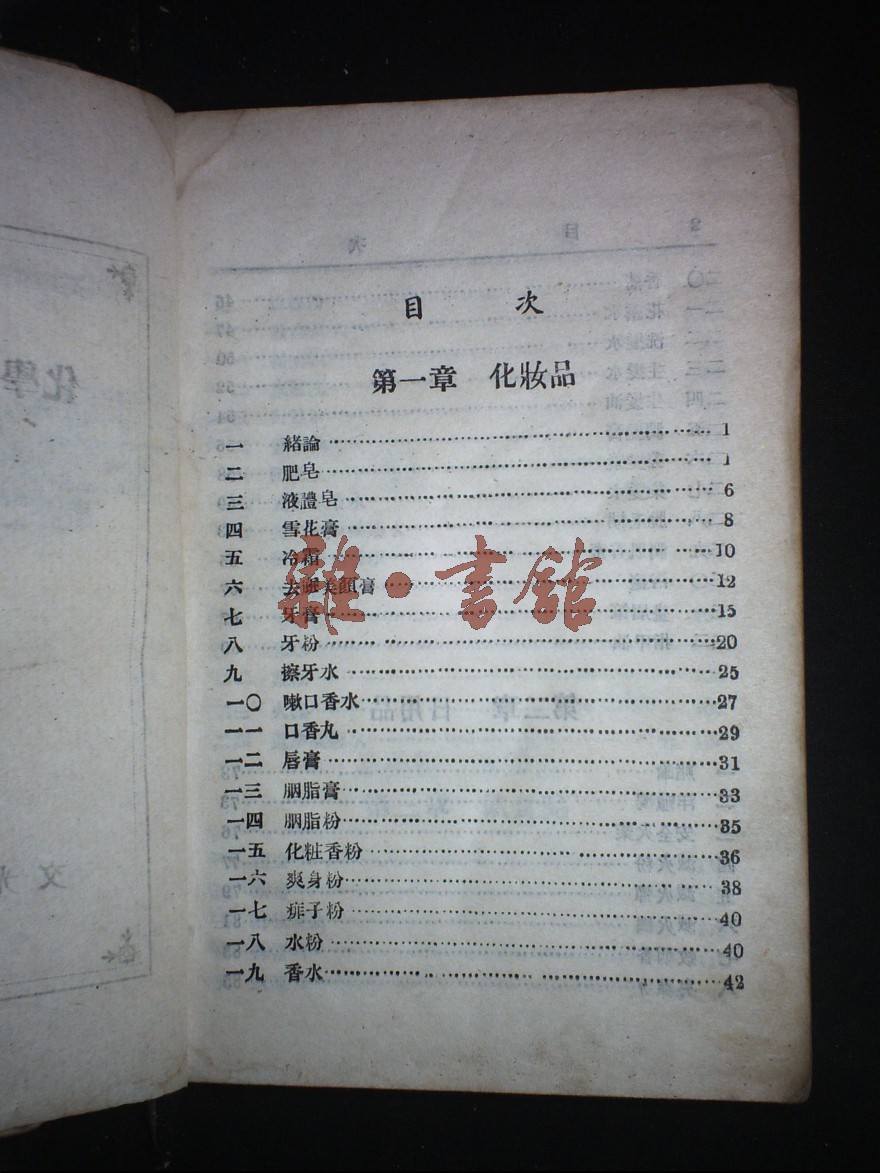 目 次
第一章 化妝品
一 緒論 1
二 肥皂 1
三 液體皂 6
四 雪花膏 8
五 冷霜 10
六 去斑美顏膏 12
七 牙膏 15
八 牙粉 20
九 擦牙水 25
一〇 嗽口香水 27
一一 口香丸 29
一二 唇膏 31
一三 胭脂膏 33
一四 胭脂粉 35
一五 化粧香粉 36
一六 爽身粉 38
一七 痱子粉 40
一八 水粉 40
一九 香水 42
雜·書館
化學